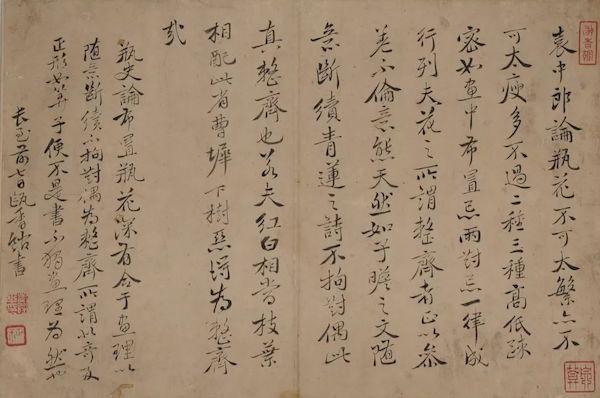 袁中郎論瓶花不可太繁亦不
可太瘦多不過二種三種高低疎
密如畫中布置忌兩對忌一律成
行列夫花之所謂整齊者正以參
差不倫意態天然如子瞻之文隨
意斷續青蓮之詩不拘對偶此
真整齊也若夫紅白相當枝葉
相配此省曹墀下樹惡得為整齊
哉
瓶史論布置瓶花深有合于畫理以
隨意斷續不拘對偶為整齊所謂以奇及
正形如算子便不是書不獨畫理為然也
長至前七日甌香館書